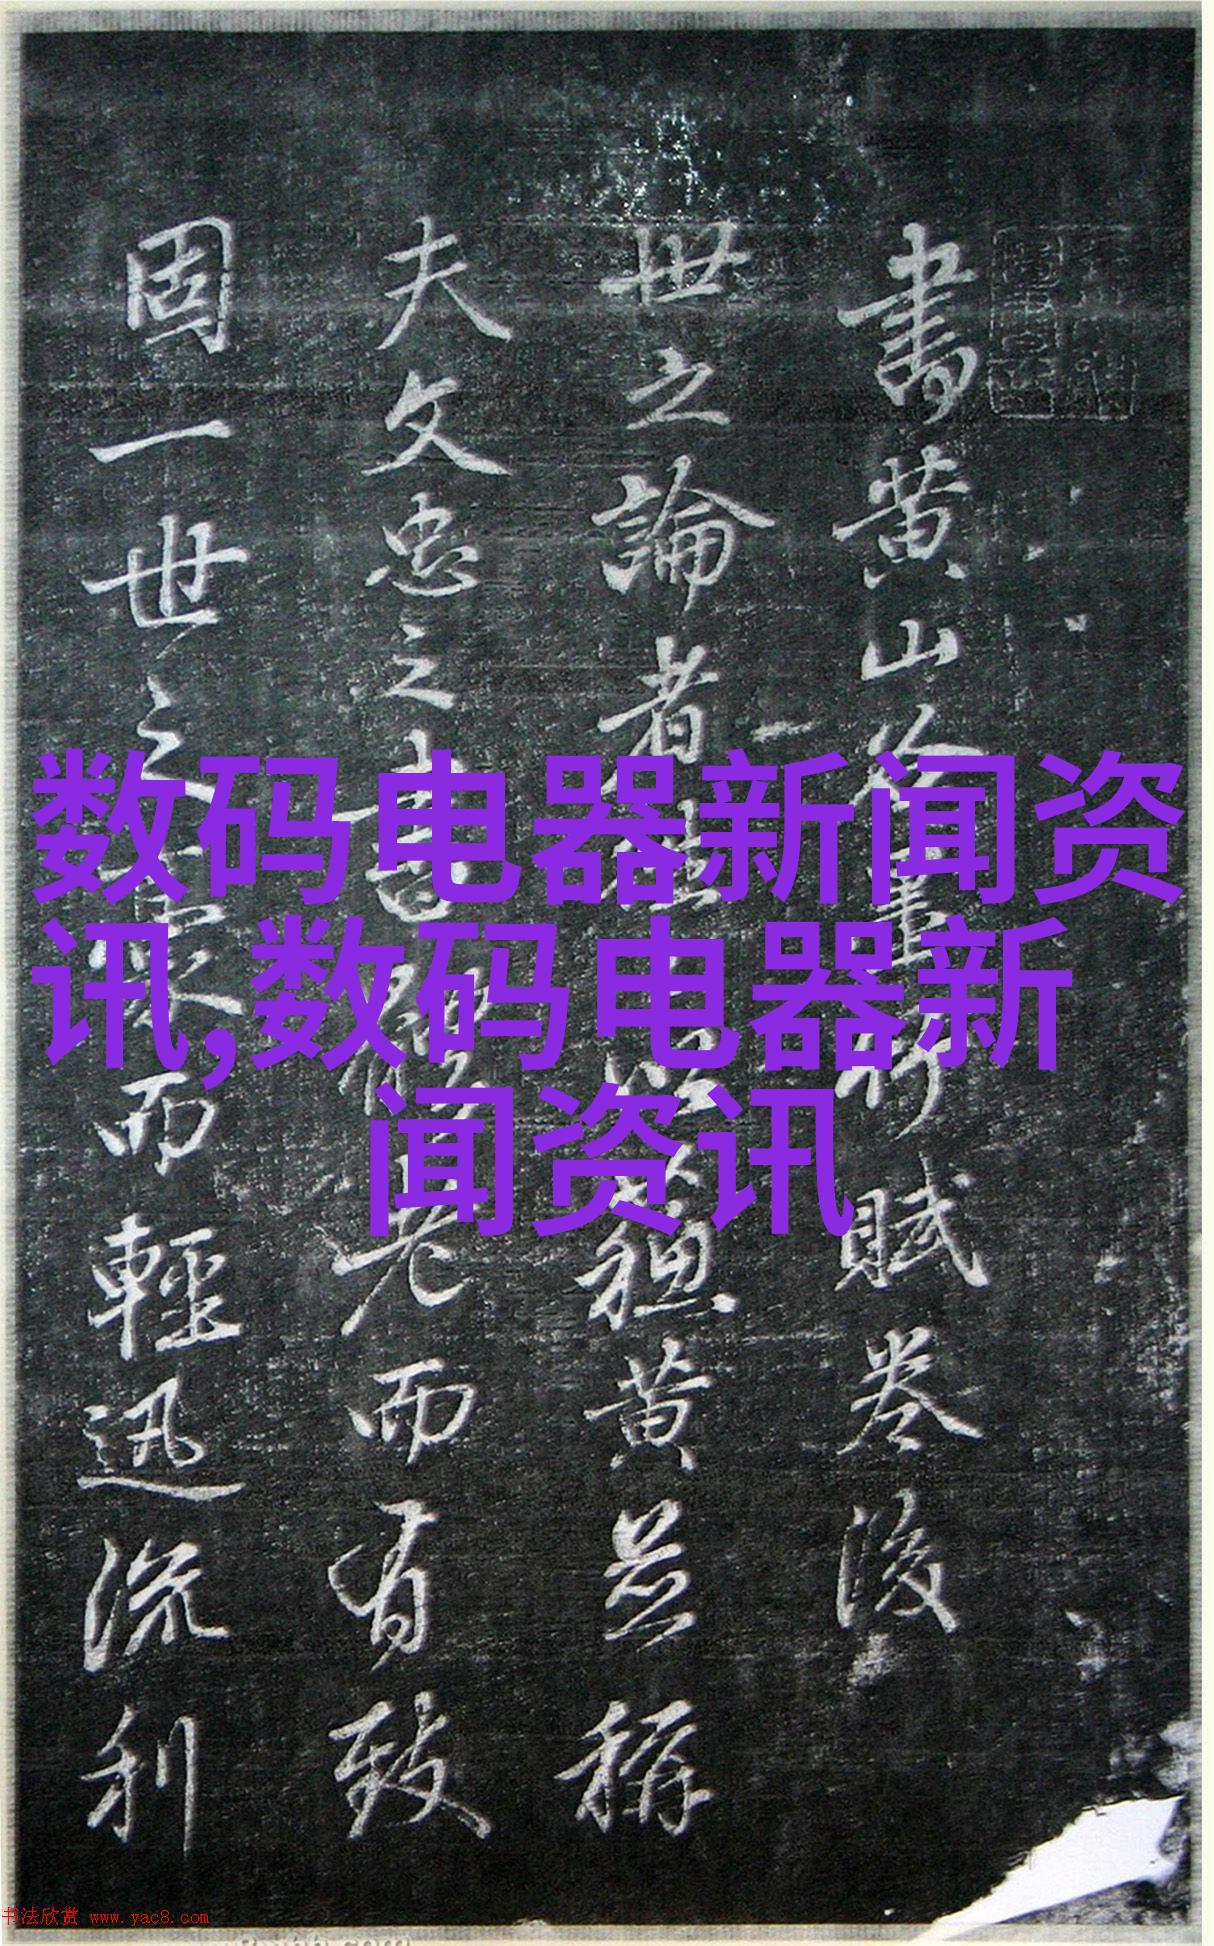 書黄山谷賦卷後
世之論者黄並稱
夫文忠之書老而有致
固一世之而輕迅流利
数码电器新闻资
讯,数码电器新
闻资讯
书法欣赏 www.yac8.com